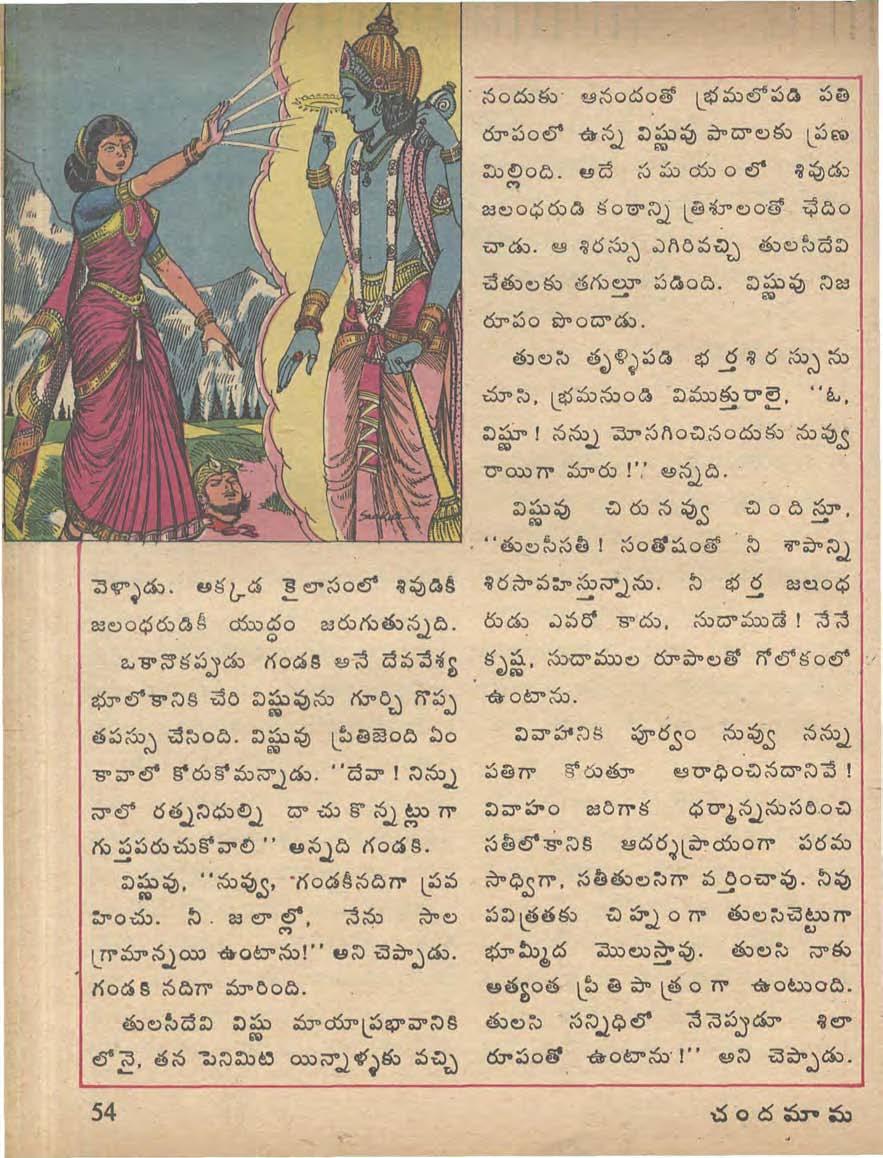 వెళ్ళాడు. అక్కడ కైలాసంలో శివుడికీ
జలంధరుడికీ యుద్ధం జరుగుతున్నది.
ఒకానొకప్పుడు గండకి అనే దేవవేశ్య
భూలోకానికి చేరి విష్ణువును గూర్చి గొప్ప
తపస్సు చేసింది. విష్ణువు ప్రీతిజెంది ఏం
కావాలో కోరుకోమన్నాడు. ''దేవా ! నిన్ను
నాలో రత్ననిధుల్ని దాచుకొన్నట్లుగా
గుప్తపరుచుకోవాలి'' అన్నది గండకి.
విష్ణువు, ''నువ్వు, గండకీనదిగా ప్రవ
హించు. నీ జలాల్లో, నేను సాల
గ్రామాన్నయి ఉంటాను!'' అని చెప్పాడు.
గండకి నదిగా మారింది.
తులసీదేవి విష్ణు మాయాప్రభావానికి
లోనై, తన పెనిమిటి యిన్నాళ్ళకు వచ్చి
నందుకు ఆనందంతో భ్రమలోపడి పతి
రూపంలో ఉన్న విష్ణువు పాదాలకు ప్రణ
మిల్లింది. అదే సమయంలో శివుడు
జలంధరుడి కంఠాన్ని త్రిశూలంతో ఛేదిం
చాడు. ఆ శిరస్సు ఎగిరివచ్చి తులసీదేవి
చేతులకు తగుల్తూ పడింది. విష్ణువు నిజ
రూపం పొందాడు.
తులసి తృళ్ళిపడి భర్తశిరస్సును
చూసి, భ్రమనుండి విముక్తురాలై, ''ఓ,
విష్ణూ ! నన్ను మోసగించినందుకు నువ్వు
రాయిగా మారు !'' అన్నది.
విష్ణువు చిరునవ్వు చిందిస్తూ,
''తులసీసతీ ! సంతోషంతో నీ శాపాన్ని
శిరసావహిస్తున్నాను. నీ భర్త జలంధ
రుడు ఎవరో కాదు, సుదాముడే ! నేనే
కృష్ణ, సుదాముల రూపాలతో గోలోకంలో
ఉంటాను.
వివాహానికి పూర్వం నువ్వు నన్ను
పతిగా కోరుతూ ఆరాధించినదానివే !
వివాహం జరిగాక ధర్మాన్ననుసరించి
సతీలోకానికి ఆదర్శప్రాయంగా పరమ
సాధ్విగా, సతీతులసిగా వర్తించావు. నీవు
పవిత్రతకు చిహ్నంగా తులసిచెట్టుగా
భూమ్మీద మొలుస్తావు. తులసి నాకు
అత్యంత ప్రీతిపాత్రంగా ఉంటుంది.
తులసి సన్నిధిలో నేనెప్పుడూ శిలా
రూపంతో ఉంటాను !'' అని చెప్పాడు.
54
చందమామ